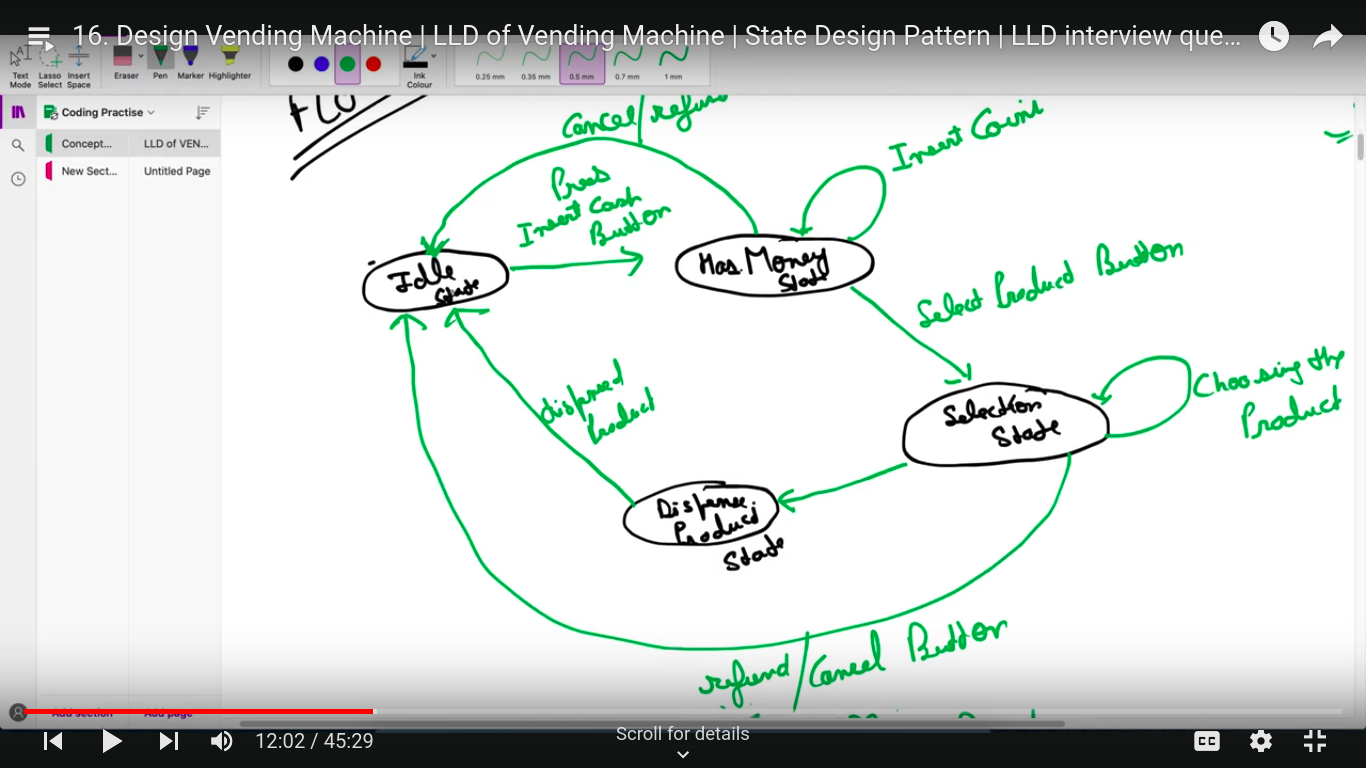 16. Design Vending Machine | LLD of Vending Machine | State Design Pattern | LLD interview que...
Text Mode
Lasso Select
Insert Space
Eraser
Pen
Marker
Highlighter
Ink Colour
0.25 mm
0.35 mm
0.5 mm
0.7 mm
1 mm
Coding Practise
Concept...
LLD of VEN...
New Sect...
Untitled Page
Cancel/refund
Insert Coins
Press
Insert Cash
Button
Idle
State
Has Money
State
Select Product Button
Selection
State
Choosing the
Product
dispensed
Product
Dispense
Product
State
refund/Cancel Button
Add section
Add page
12:02 / 45:29
Scroll for details
CC